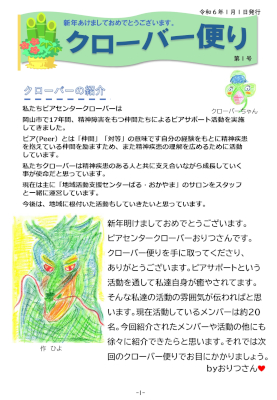 令和6年1月1日発行
新年あけましておめでとうございます。
クローバー便り
第1号
クローバーの紹介
クローバーちゃん
私たちピアセンタークローバーは
岡山市で17年間、精神障害をもつ仲間たちによるピアサポート活動を実施
してきました。
ピア(Peer）とは「仲間」「対等」の意味です自分の経験をもとに精神疾患
を抱えている仲間を励ますため、また精神疾患の理解を広めるために活動
しています。
私たちクローバーは精神疾患のある人と共に支え合いながら成長していく
事が使命だと思っています。
現在は主に「地域活動支援センターぱる・おかやま」のサロンをスタッフ
と一緒に運営しています。
今後は、地域に根付いた活動もしていきたいと思っています。
新年明けましておめでとうございます。
ピアセンタークローバーおりつさんです。
クローバー便りを手に取ってくださり、
ありがとうございます。ピアサポートという
活動を通して私達自身が癒やされてます。
そんな私達の活動の雰囲気が伝わればと思
います。現在活動しているメンバーは約20
名。今回紹介されたメンバーや活動の他にも
徐々に紹介できたらと思います。それでは次
回のクローバー便りでお目にかかりましょう。
byおりつさん♥
作 ひよ
-1-